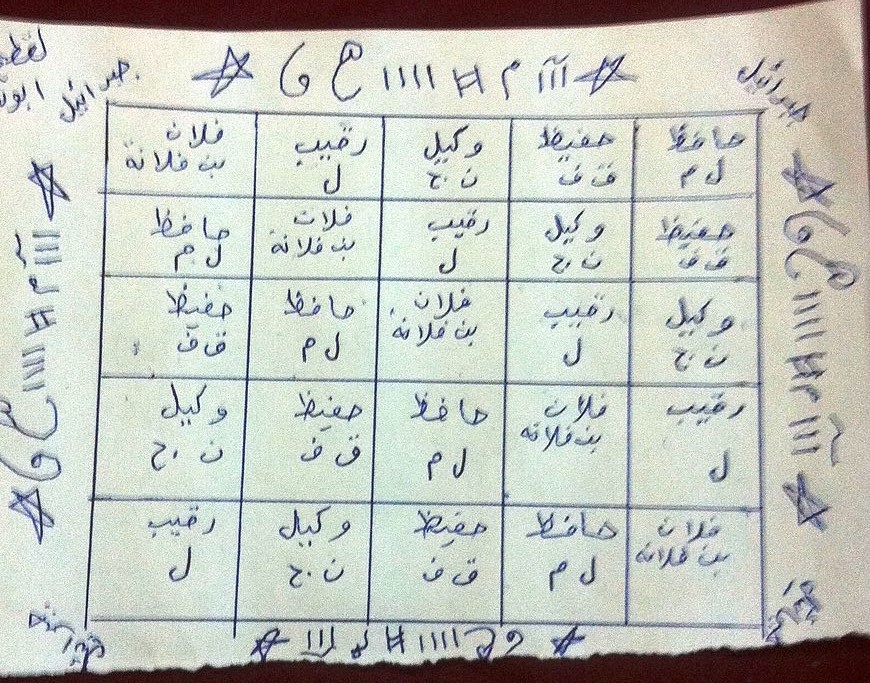 جبرائيل
جبرائيل
حافظ حفيظ وكيل رقيب فلان
ل م ق ف ن ج ل بن فلانة
حفيظ وكيل رقيب فلان حافظ
ق ف ن ج ل بن فلانة ل م
وكيل رقيب فلان حافظ حفيظ
ن ج ل بن فلانة ل م ق ف
رقيب فلان حافظ حفيظ وكيل
ل بن فلانه ل م ق ف ن ج
فلان حافظ حفيظ وكيل رقيب
بن فلانه ل م ق ف ن ج ل